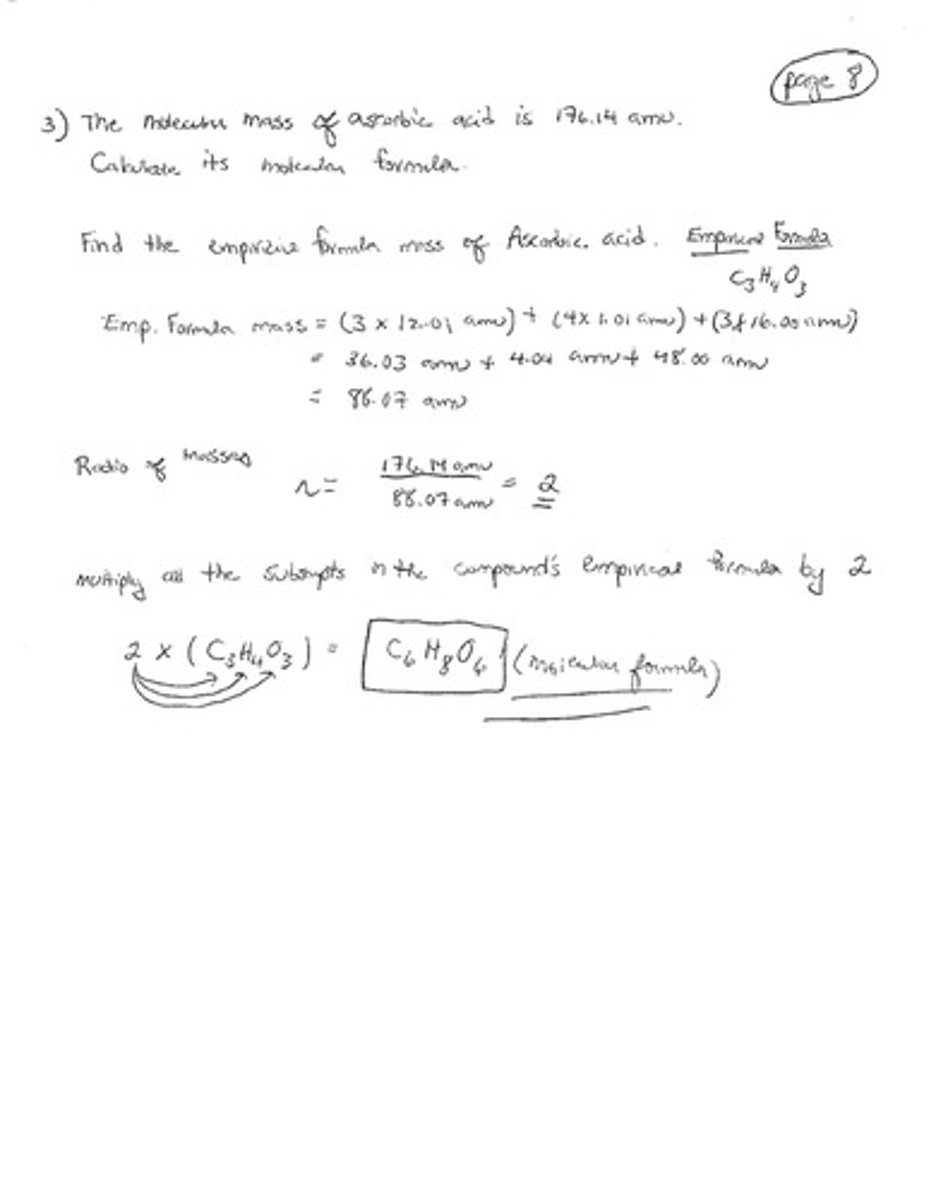 page 8
3) The molecular mass of ascorbic acid is 176.14 amu.
Calculate its molecular formula.
Find the empirical formula mass of Ascorbic acid. Empirical Formula
C3H4O3
Emp. Formula mass = (3 x 12.01 amu) + (4x 1.01 amu) + (3x16.00 amu)
= 36.03 amu + 4.04 amu + 48.00 amu
= 88.07 amu
Ratio of masses n = 176.14 amu / 88.07 amu = 2
multiply all the subscripts in the compound's empirical formula by 2
2 x (C3H4O3) = C6H8O6 (molecular formula)